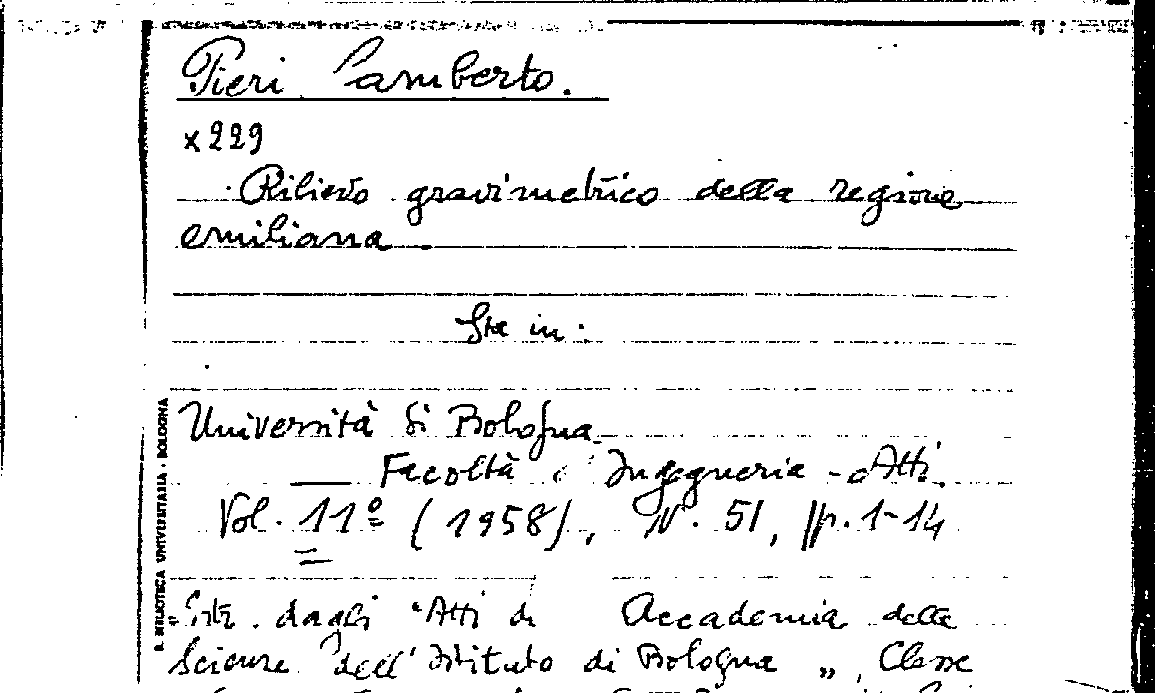 Pieri Lamberto.
x 229
Rilievo gravimetrico della regione
emiliana.
Sta in:
Università di Bologna
Facoltà d'Ingegneria - Atti.
Vol. 11º (1958), N. 51, pp. 1-14
= Estr. dagli "Atti di Accademia delle
Scienze dell'Istituto di Bologna", Classe
B. BIBLIOTECA UNIVERSITARIA - BOLOGNA